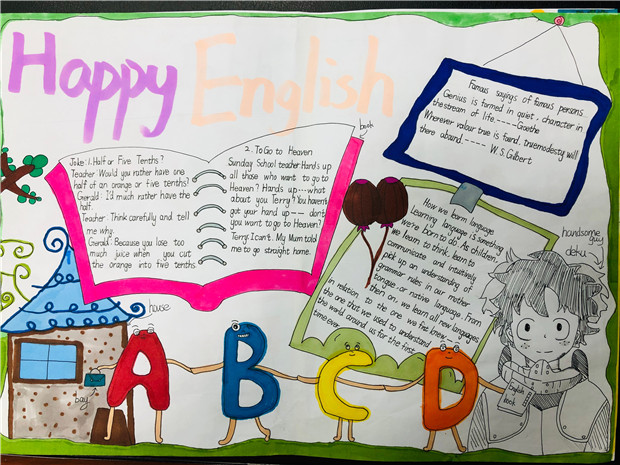 Happy English
book
Joke: 1. Half or Five Tenths?
Teacher Would you rather have one
half of an orange or five tenths?
Gerald: I'd much rather have the
half.
Teacher: Think carefully and tell
me why.
Gerald: Because you lose too
much juice when you cut
the orange into five tenths
2. To Go to Heaven
Sunday School teacher: Hands up
all those who want to go to
Heaven? Hands up....what
about you Terry? You haven't
got your hand up—— don't
you want to go to Heaven?
Terry: I can't. My Mum told
me to go straight home.
Famous sayings of famous persons
Genius is formed in quiet, character in
the stream of life.----Goethe
Wherever valour true is found, truemodesty will
there abound.---- W.S.Gilbert
How we learn language
Learning language is something
we're born to do. As children,
we learn to think, learn to
communicate and intuitively
pick up an understanding of
grammar rules in our mother
tongue or native language. From
then on, we learn all new languages
in relation to the one we first knew
the one that we used to understand
the world around us for the first
time ever
handsome
guy
deku
house
bag
A B C D
English
book